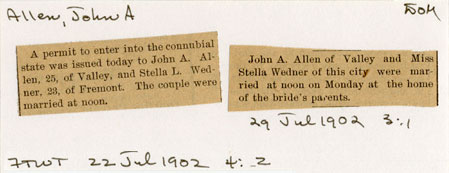 Allen, John A
DOM
A permit to enter into the connubial
state was issued today to John A. Al-
len, 25, of Valley, and Stella L. Wed-
ner, 23, of Fremont. The couple were
married at noon.
John A. Allen of Valley and Miss
Stella Wedner of this city were mar-
ried at noon on Monday at the home
of the bride's parents.
29 Jul 1902 3:1
FTWT 22 Jul 1902 4:2